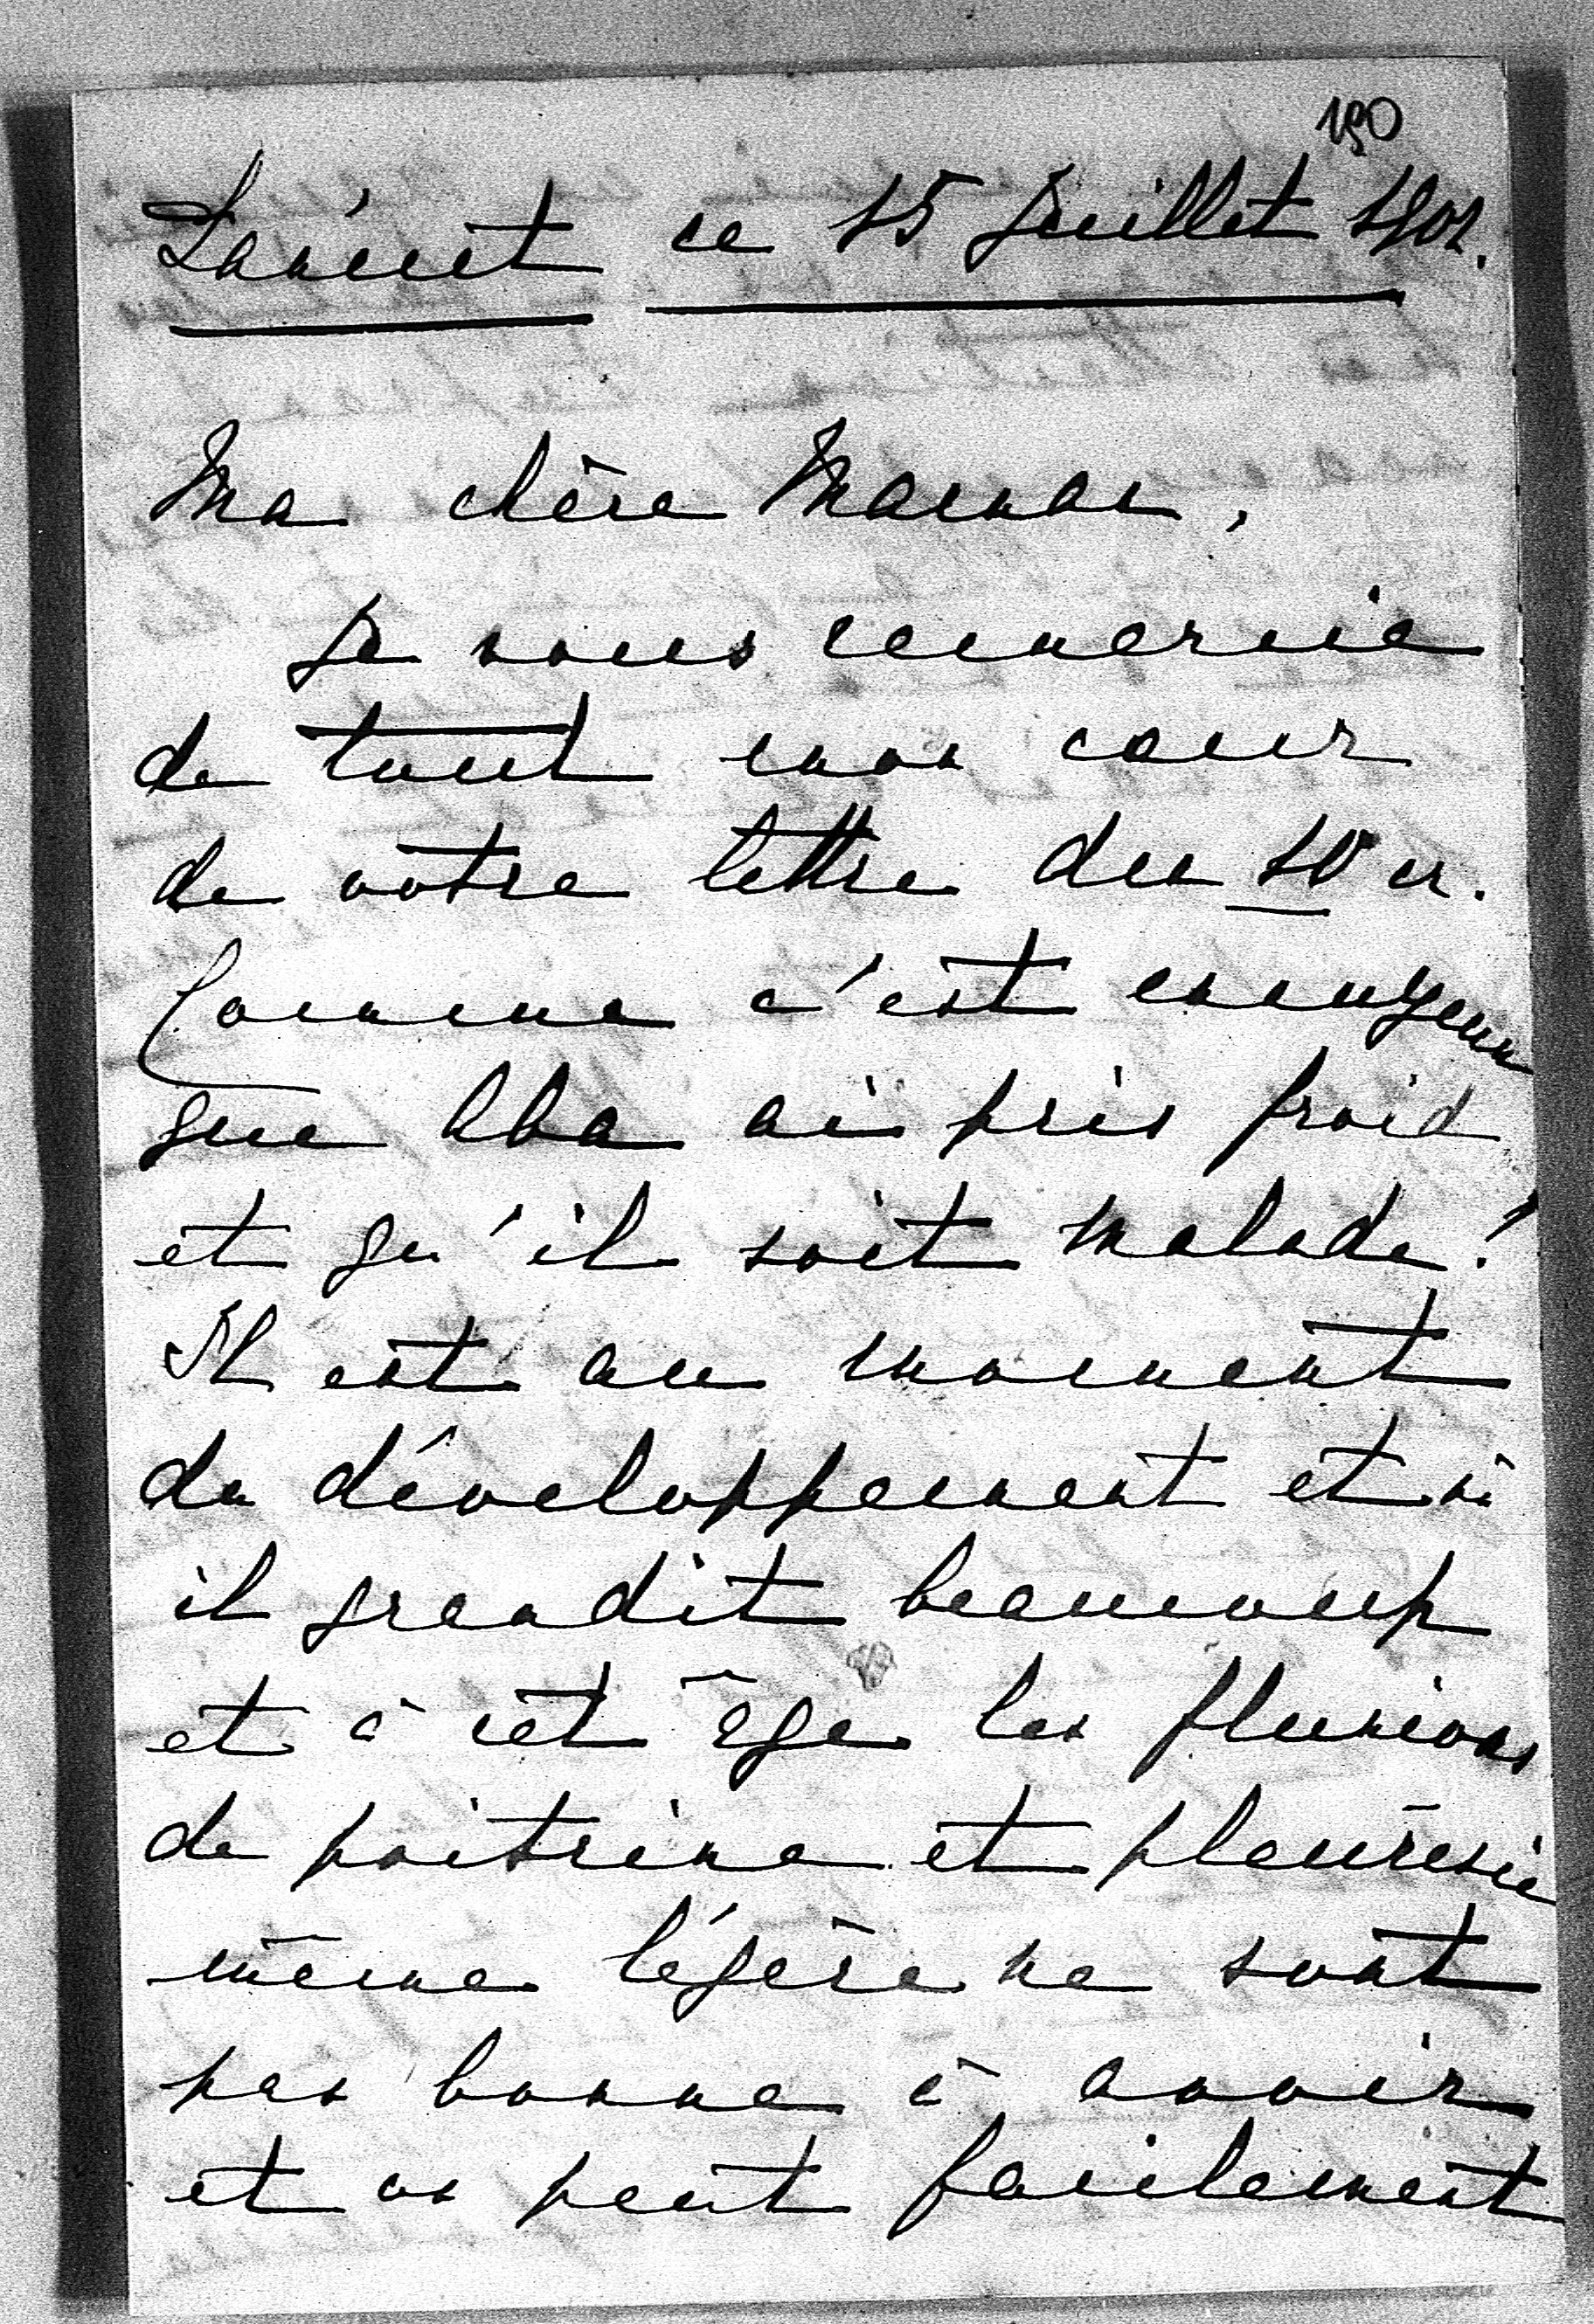 190
Lancut ce 15 Juillet 1902.
Ma chère Maman,
Je vous remercie
de tout mon cœur
de votre lettre du 10 cr.
Comme c'est ennuyeux
que Aba ai pris froid
et qu'il soit malade!
Il est au moment
du développement et si
il grandit beaucoup
et à cet âge les fluxions
de poitrine et pleurésie
même légère ne sont
pas bonne à avoir
et on peut facilement